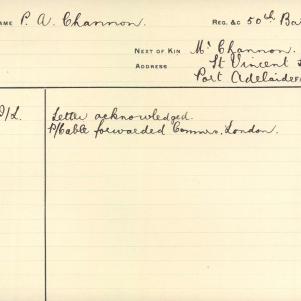 NAME P. A. Channon. REG. &C 50th Ba
NEXT OF KIN Mr Channon.
ADDRESS St Vincent
Port Adelaide
D/L. Letter acknowledged.
P/Cable forwarded Commrs. London.